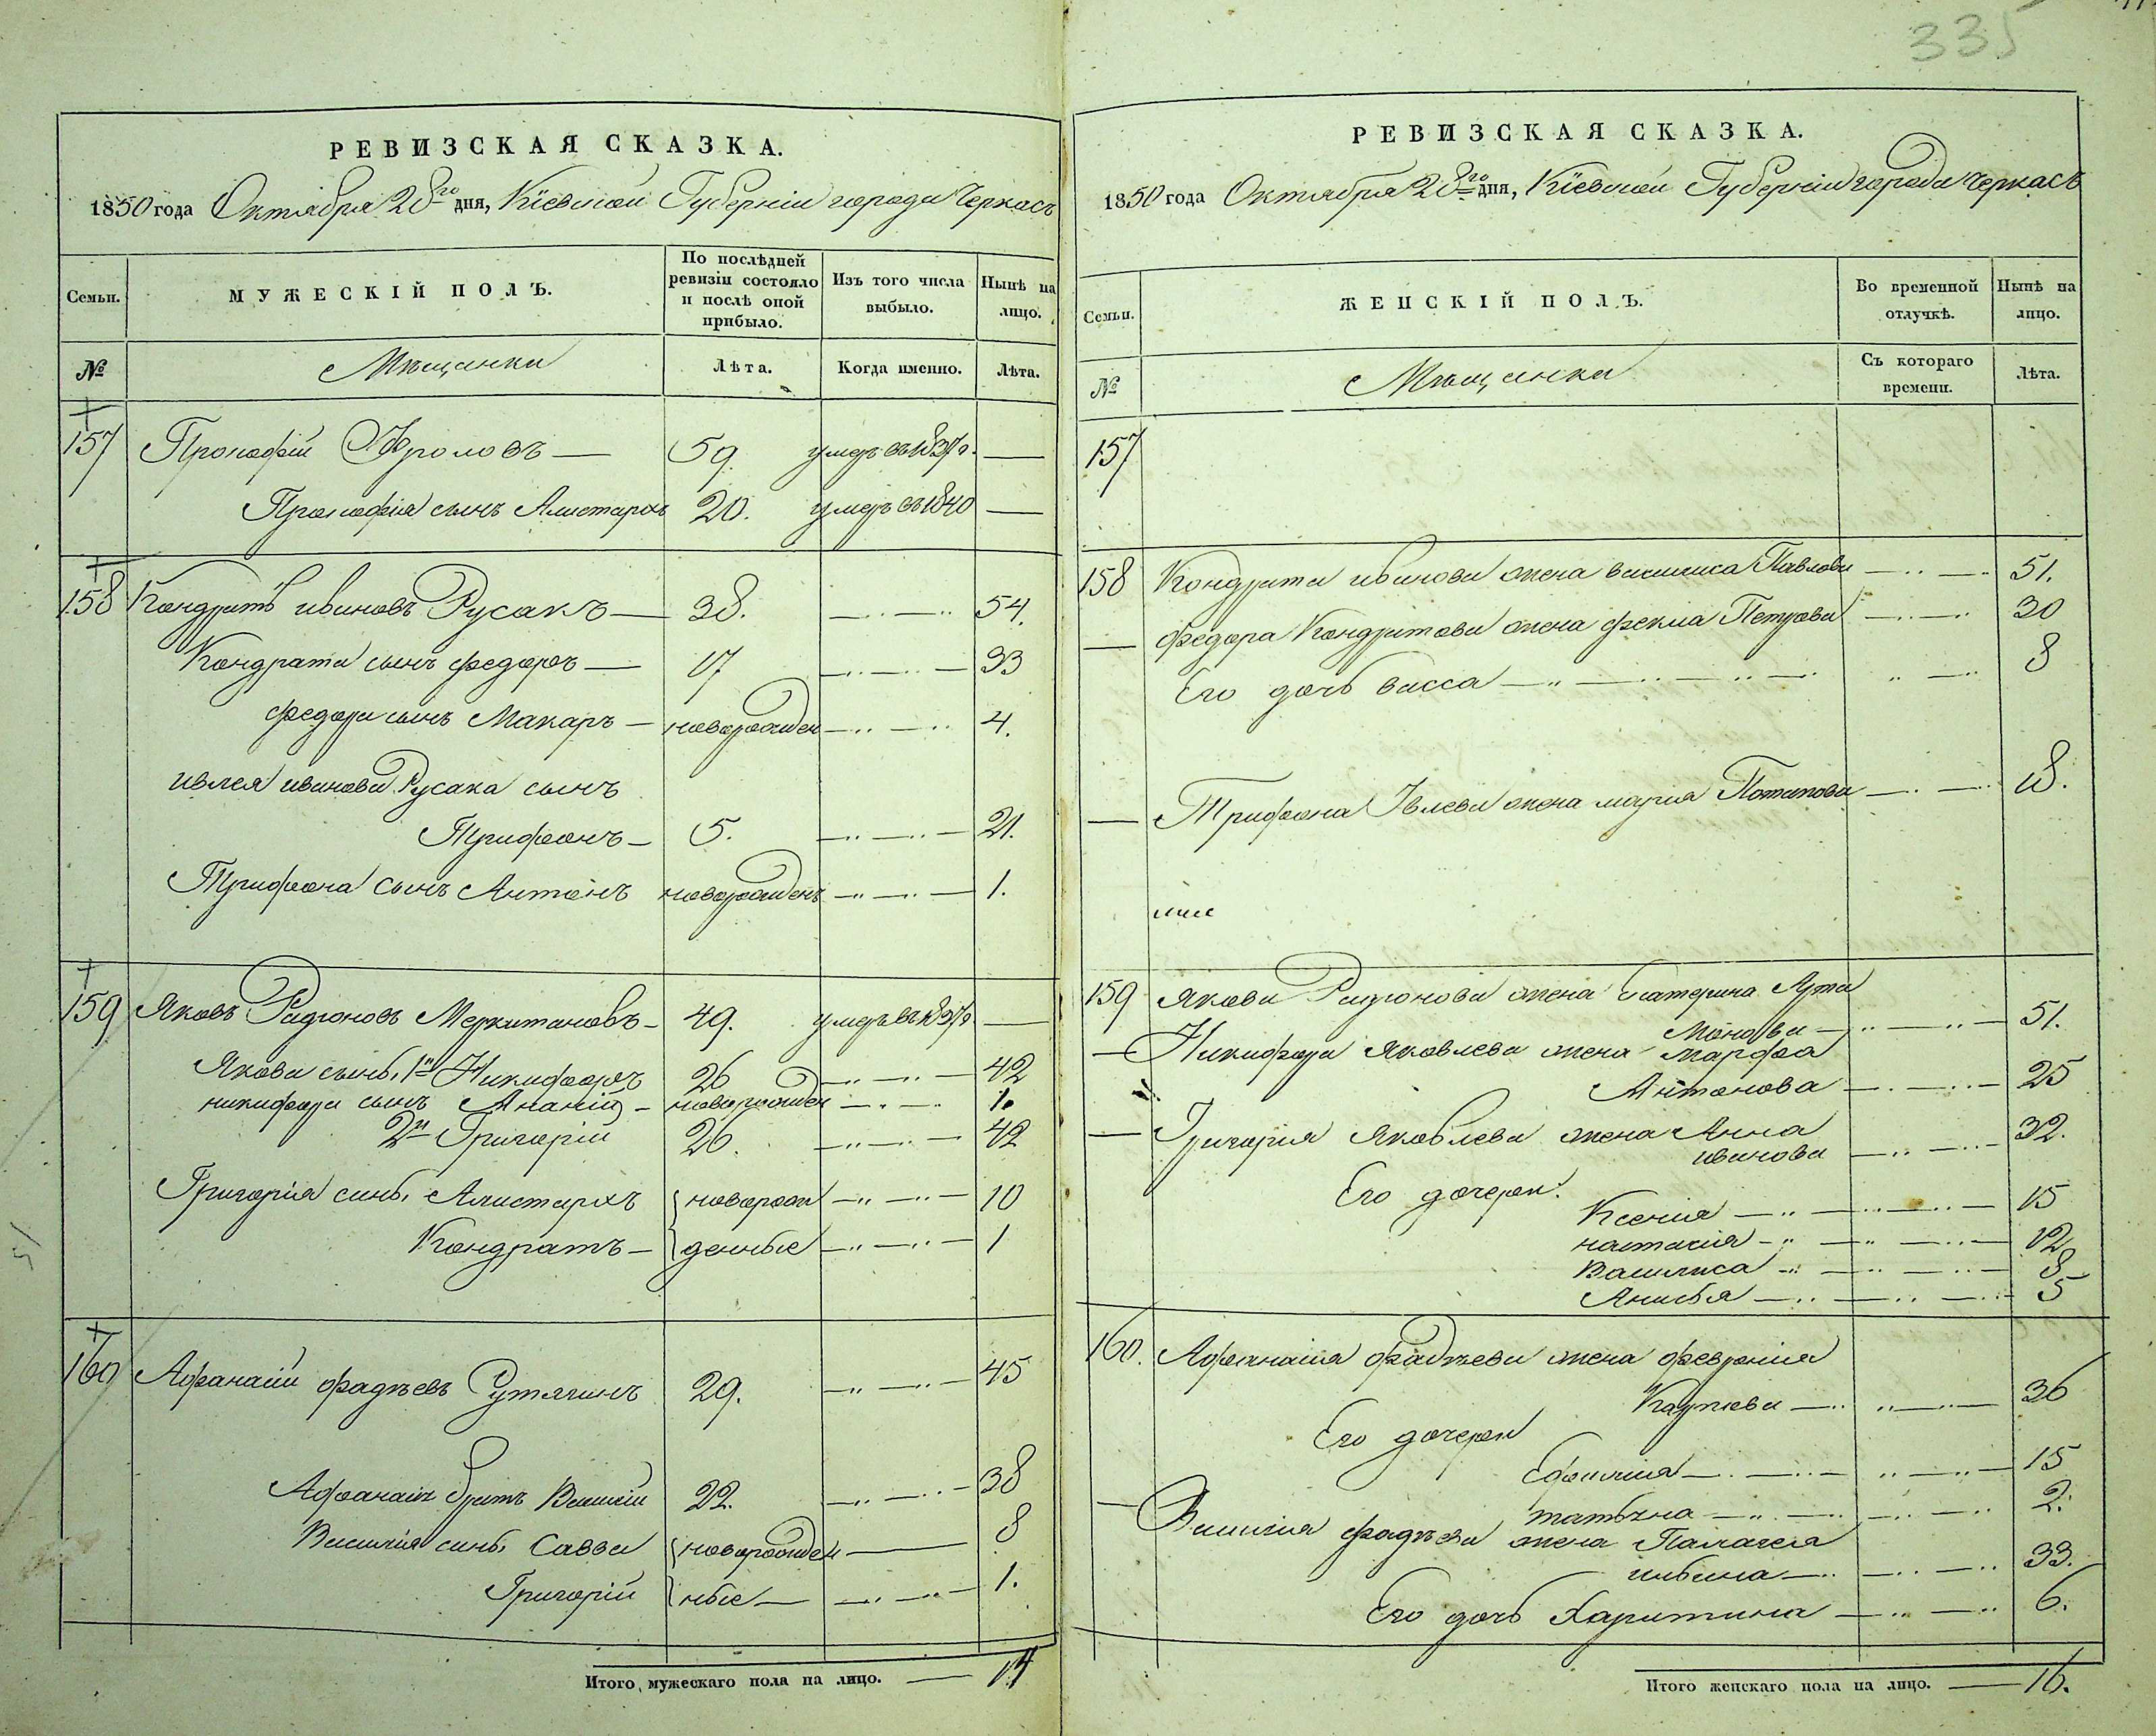 335
РЕВИЗСКАЯ СКАЗКА.
1850 года Октября 28го дня, Кіевской Губерніи города Черкасъ
Семьи.
МУЖЕСКІЙ ПОЛЪ.
По послѣдней ревизіи состояло и послѣ оной прибыло.
Изъ того числа выбыло.
Нынѣ на лицо.
№
Мѣщанки
Лѣта.
Когда именно.
Лѣта.
157 Прокофій Фроловъ — 59. умеръ въ 1837г. —
Прокофія сынъ Алистархъ 20. умеръ въ 1840 —
158 Кондратъ ивановъ Русакъ — 38. 54.
Кондрата сынъ федоръ — 17 33
федора сынъ Макаръ — новорожден 4.
ивлея иванова Русака сынъ
Трифонъ — 5. 21.
Трифона сынъ Антонъ новорожденъ 1.
159 Яковъ Радіоновъ — 49. умеръ въ 1837г. —
Якова сынъ, 1й Никифоръ 26 42
никифора сынъ Ананій — новорожден 1.
2й Григорій 26. 42
Григорія сынъ, Алистархъ новорож 10
Кондратъ — денные 1
160 Афанасій фадѣевъ 29. 45
Афанасія братъ Василій 22. 38
Василія сынъ, Савва новорожден 8
Григорій ные — 1.
Итого мужескаго пола на лицо. — 14
РЕВИЗСКАЯ СКАЗКА.
1850 года Октября 28го дня, Кіевской Губерніи города Черкасъ
Семьи.
ЖЕНСКІЙ ПОЛЪ.
Во временной отлучкѣ.
Нынѣ на лицо.
№
Мѣщанки
Съ котораго времени.
Лѣта.
157
158 Кондрата иванова жена василиса Павлова 51.
— федора Кондратова жена фекла Петрова 30
Его дочь васса 8
— Трифона Ивлева жена марія Потапова 18.
159 Якова Радіонова жена Екатерина Арта
монова — 51.
— Никифора Яковлева жена марфа
Антонова — 25
— Григорія Яковлева жена Анна
иванова 32.
Его дочери:
Ксенія — 15
настасія — 12
Василиса — 8
Анисья — 5
160. Афанасія фадѣева жена февронія
Карпова — 36
Его дочери
15
татьяна — 2.
— Василія фадѣева жена Палагея
ильина — 33.
Его дочь Харитина — 6.
Итого женскаго пола на лицо. — 16.